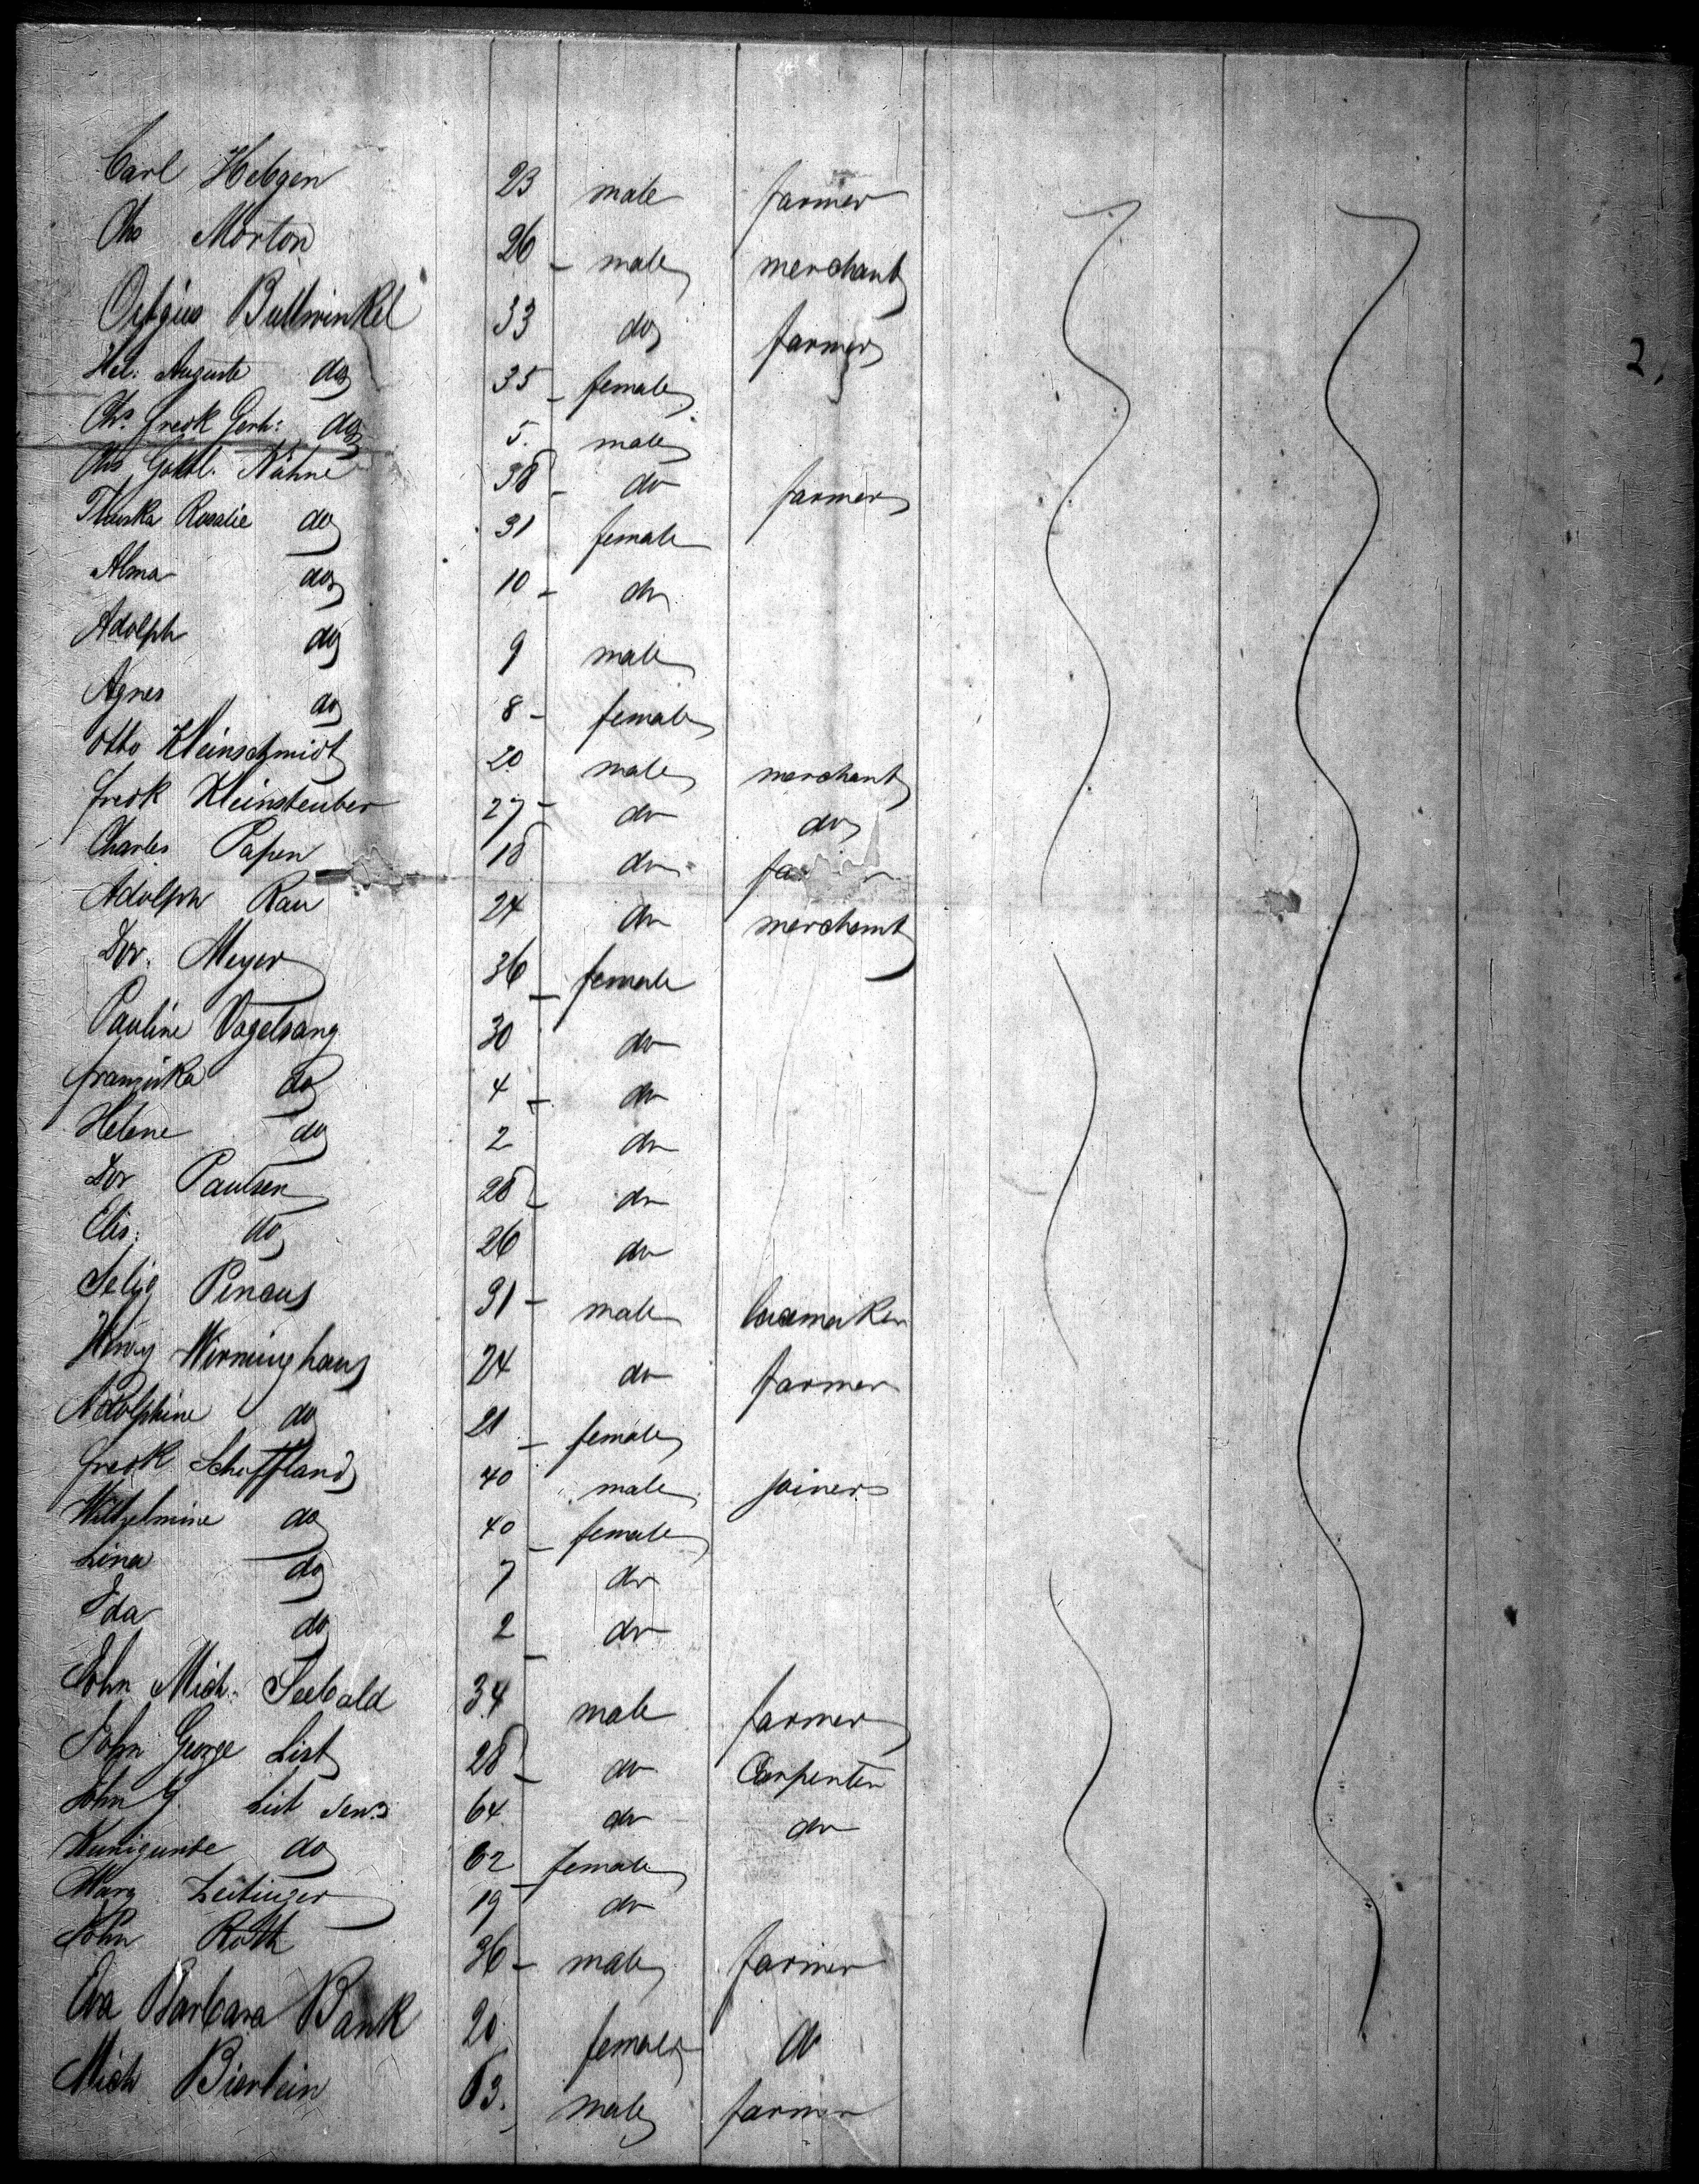 Carl Hebgen 23 male farmer
Chs Morton 26 male merchant
Oltgies Bullwinkel 33 do farmer
Hel: Auguste do 35 female
Chs. Fredk Gerh: do 5. male
Chs Gottl. Nähne 38 do farmer
Rosalie do 31 female
Alma do 10 do
Adolph do 9 male
Agnes do 8 female
Otto Kleinschmidt 20 male merchant
Fredk Kleinsteuber 27 do do
Charles Papen 18 do fa
Adolph Rau 24 do merchant
Dor. Meyer 36 female
Pauline Vogelsang 30 do
Franziska do 4 do
Helene do 2 do
Dor Paulsen 28 do
Elis: do 26 do
Selig Pincus 31 male
Henry Wirminghaus 24 do farmer
Adolphine do 21 female
Fredk Scheffland 40 male joiner
Wilhelmine do 40 female
Lina do 7 do
Ida do 2 do
John Mich: Seebald 34 male farmer
John George List 28 do Carpenter
John G. List Sen: 64 do do
Kunigunde do 62 female
Marg Zeitinger 19 do
John Roth 36 male farmer
Eva Barbara Bank 20 female do
Mich Bierlein 63. male farmer
2.